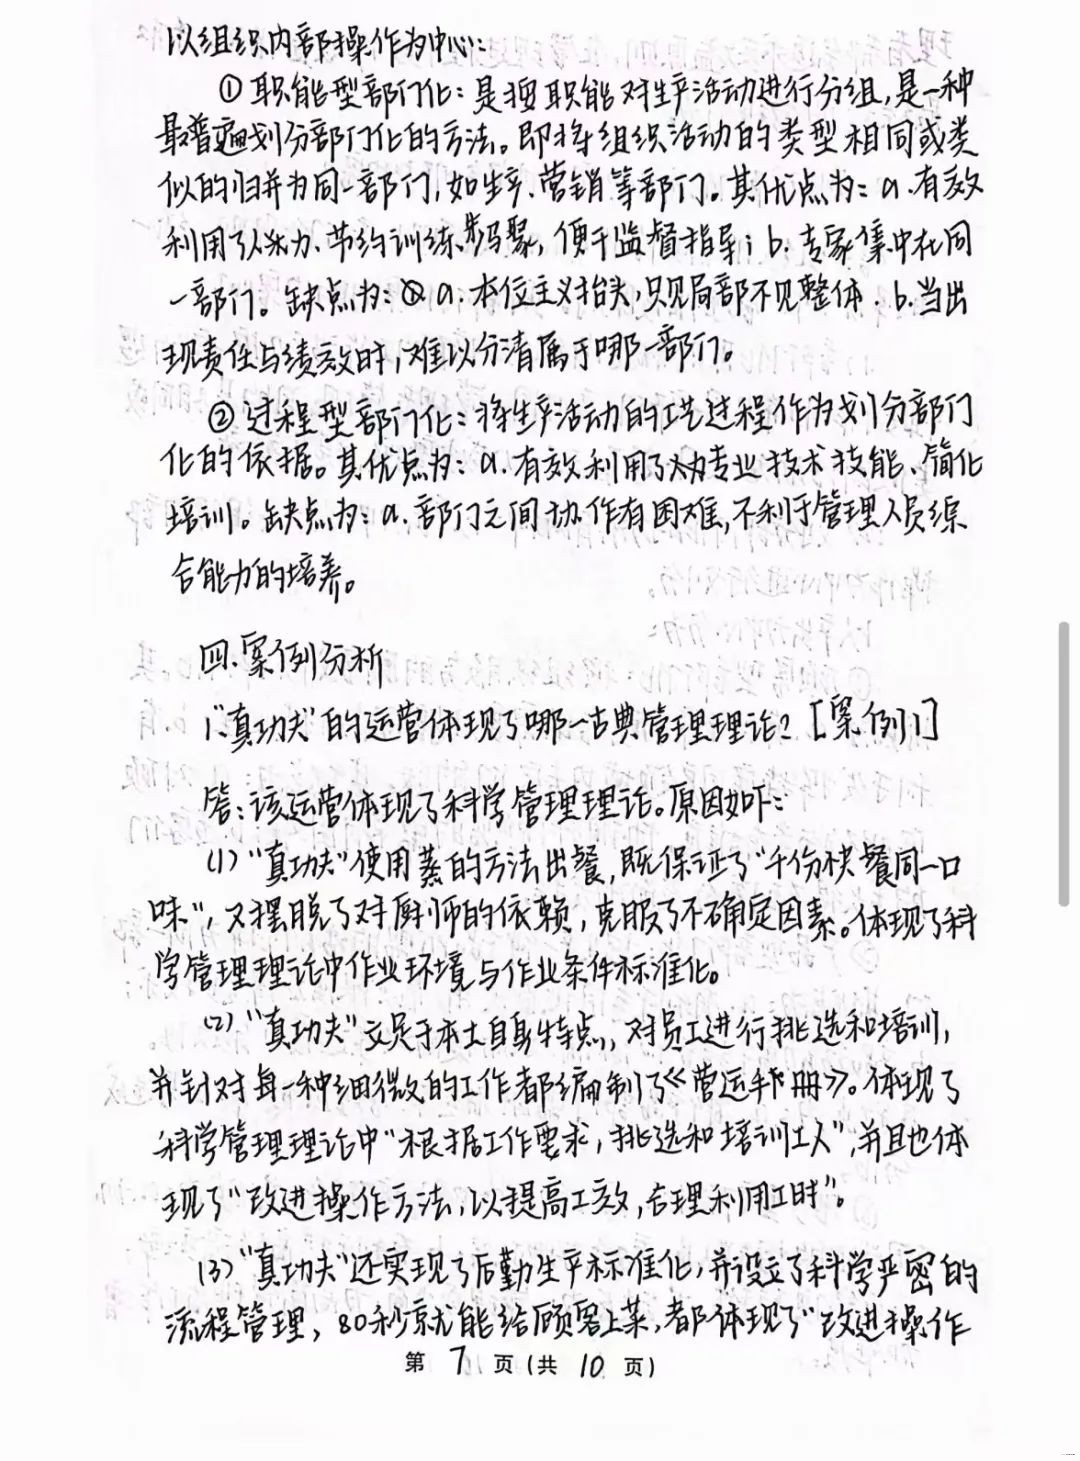 以组织内部操作为中心:
① 职能型部门化: 是按职能对生产活动进行分组,是一种
最普遍划分部门化的方法。即将组织活动的类型相同或类
似的归并为同一部门,如生产、营销等部门。其优点为: a.有效
利用了人、物力、节约训练,便于监督指导; b. 专家集中在同
一部门。缺点为: a. 本位主义抬头,只见局部不见整体. b.当出
现责任与绩效时,难以分清属于哪一部门。
② 过程型部门化: 将生产活动的工艺过程作为划分部门
化的依据。其优点为: a. 有效利用了专业技术技能、简化
培训。缺点为: a. 部门之间协作有困难,不利于管理人员综
合能力的培养。
四、案例分析
1、"真功夫"的运营体现了哪一古典管理理论? [案例1]
答: 该运营体现了科学管理理论。原因如下:
(1) "真功夫"使用蒸的方法出餐,既保证了"千份快餐同一口
味",又摆脱了对厨师的依赖,克服了不确定因素。体现了科
学管理理论中作业环境与作业条件标准化。
(2) "真功夫"立足于本土自身特点,对员工进行挑选和培训,
并针对每一种细微的工作都编制了《营运手册》。体现了
科学管理理论中"根据工作要求,挑选和培训工人",并且也体
现了"改进操作方法,以提高工效,合理利用工时"。
(3) "真功夫"还实现了后勤生产标准化,并设立了科学严密的
流程管理, 80秒就能给顾客上菜,都体现了"改进操作
第 7 页 (共 10 页)